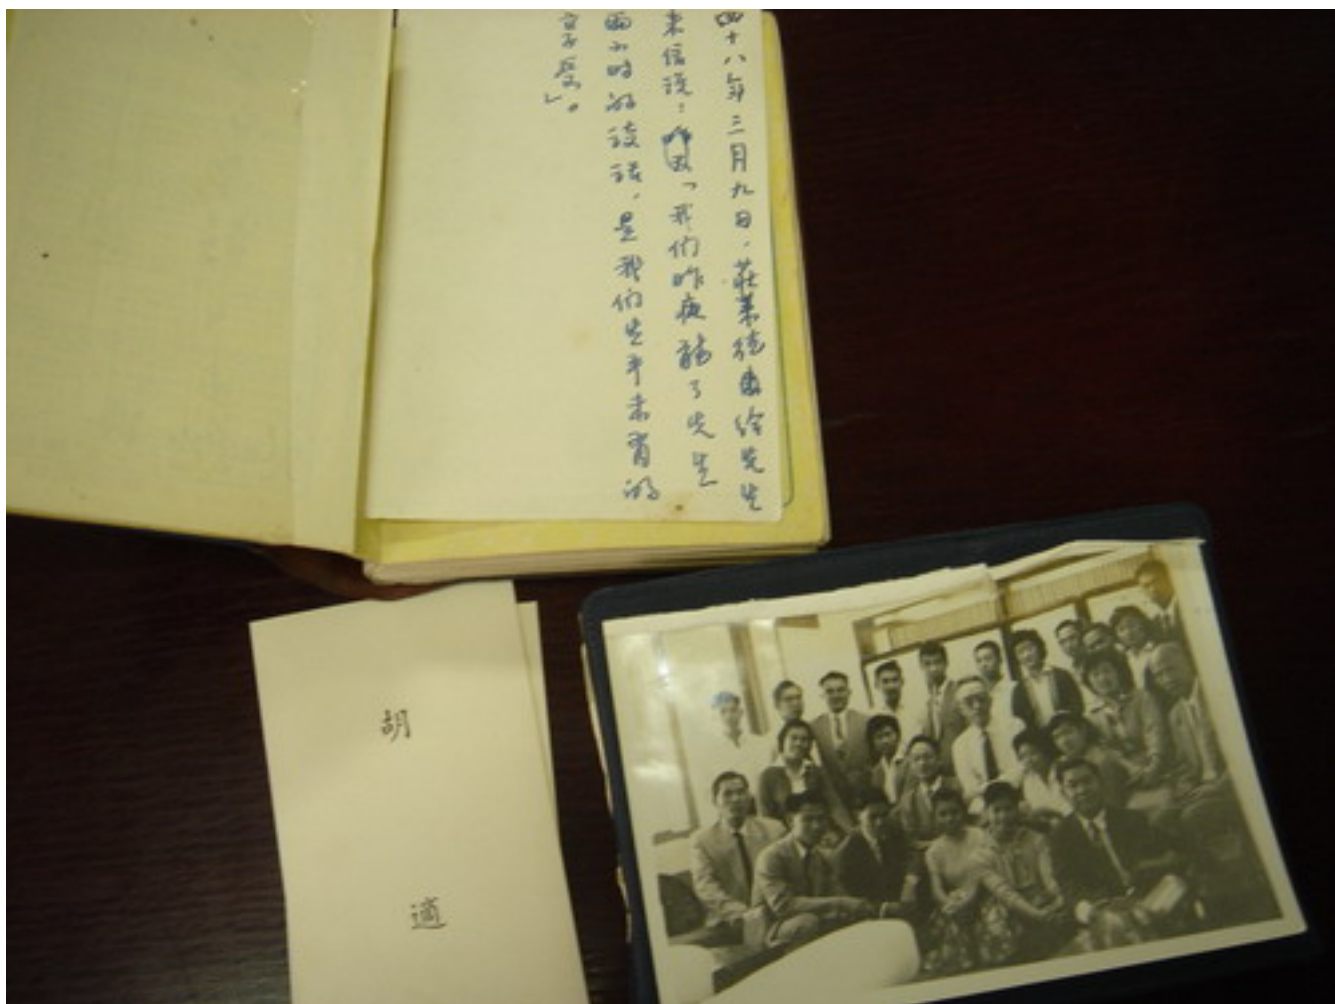 四十八年三月九日，莊萊德由給先生
來信說：「我們昨夜聽了先生
兩小時的談話，是我們生平未有的
享受」。
胡
適